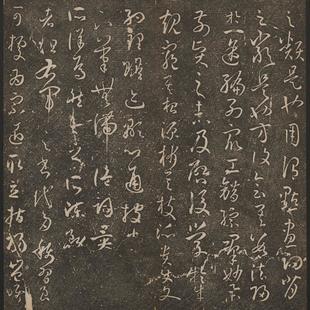 之類是也用謂點畫向背
之類是也方復會其數法歸
於一途編列眾工錯綜羣妙舉
前賢之未及啟後學於成
規窺其根源析其枝派貴使文
約理贍迹顯心通披卷
可明下筆無滯詭詞異
說非所詳焉然今之所陳務裨
學者但右軍之書代多稱習良
可據為宗匠取立指歸豈唯會